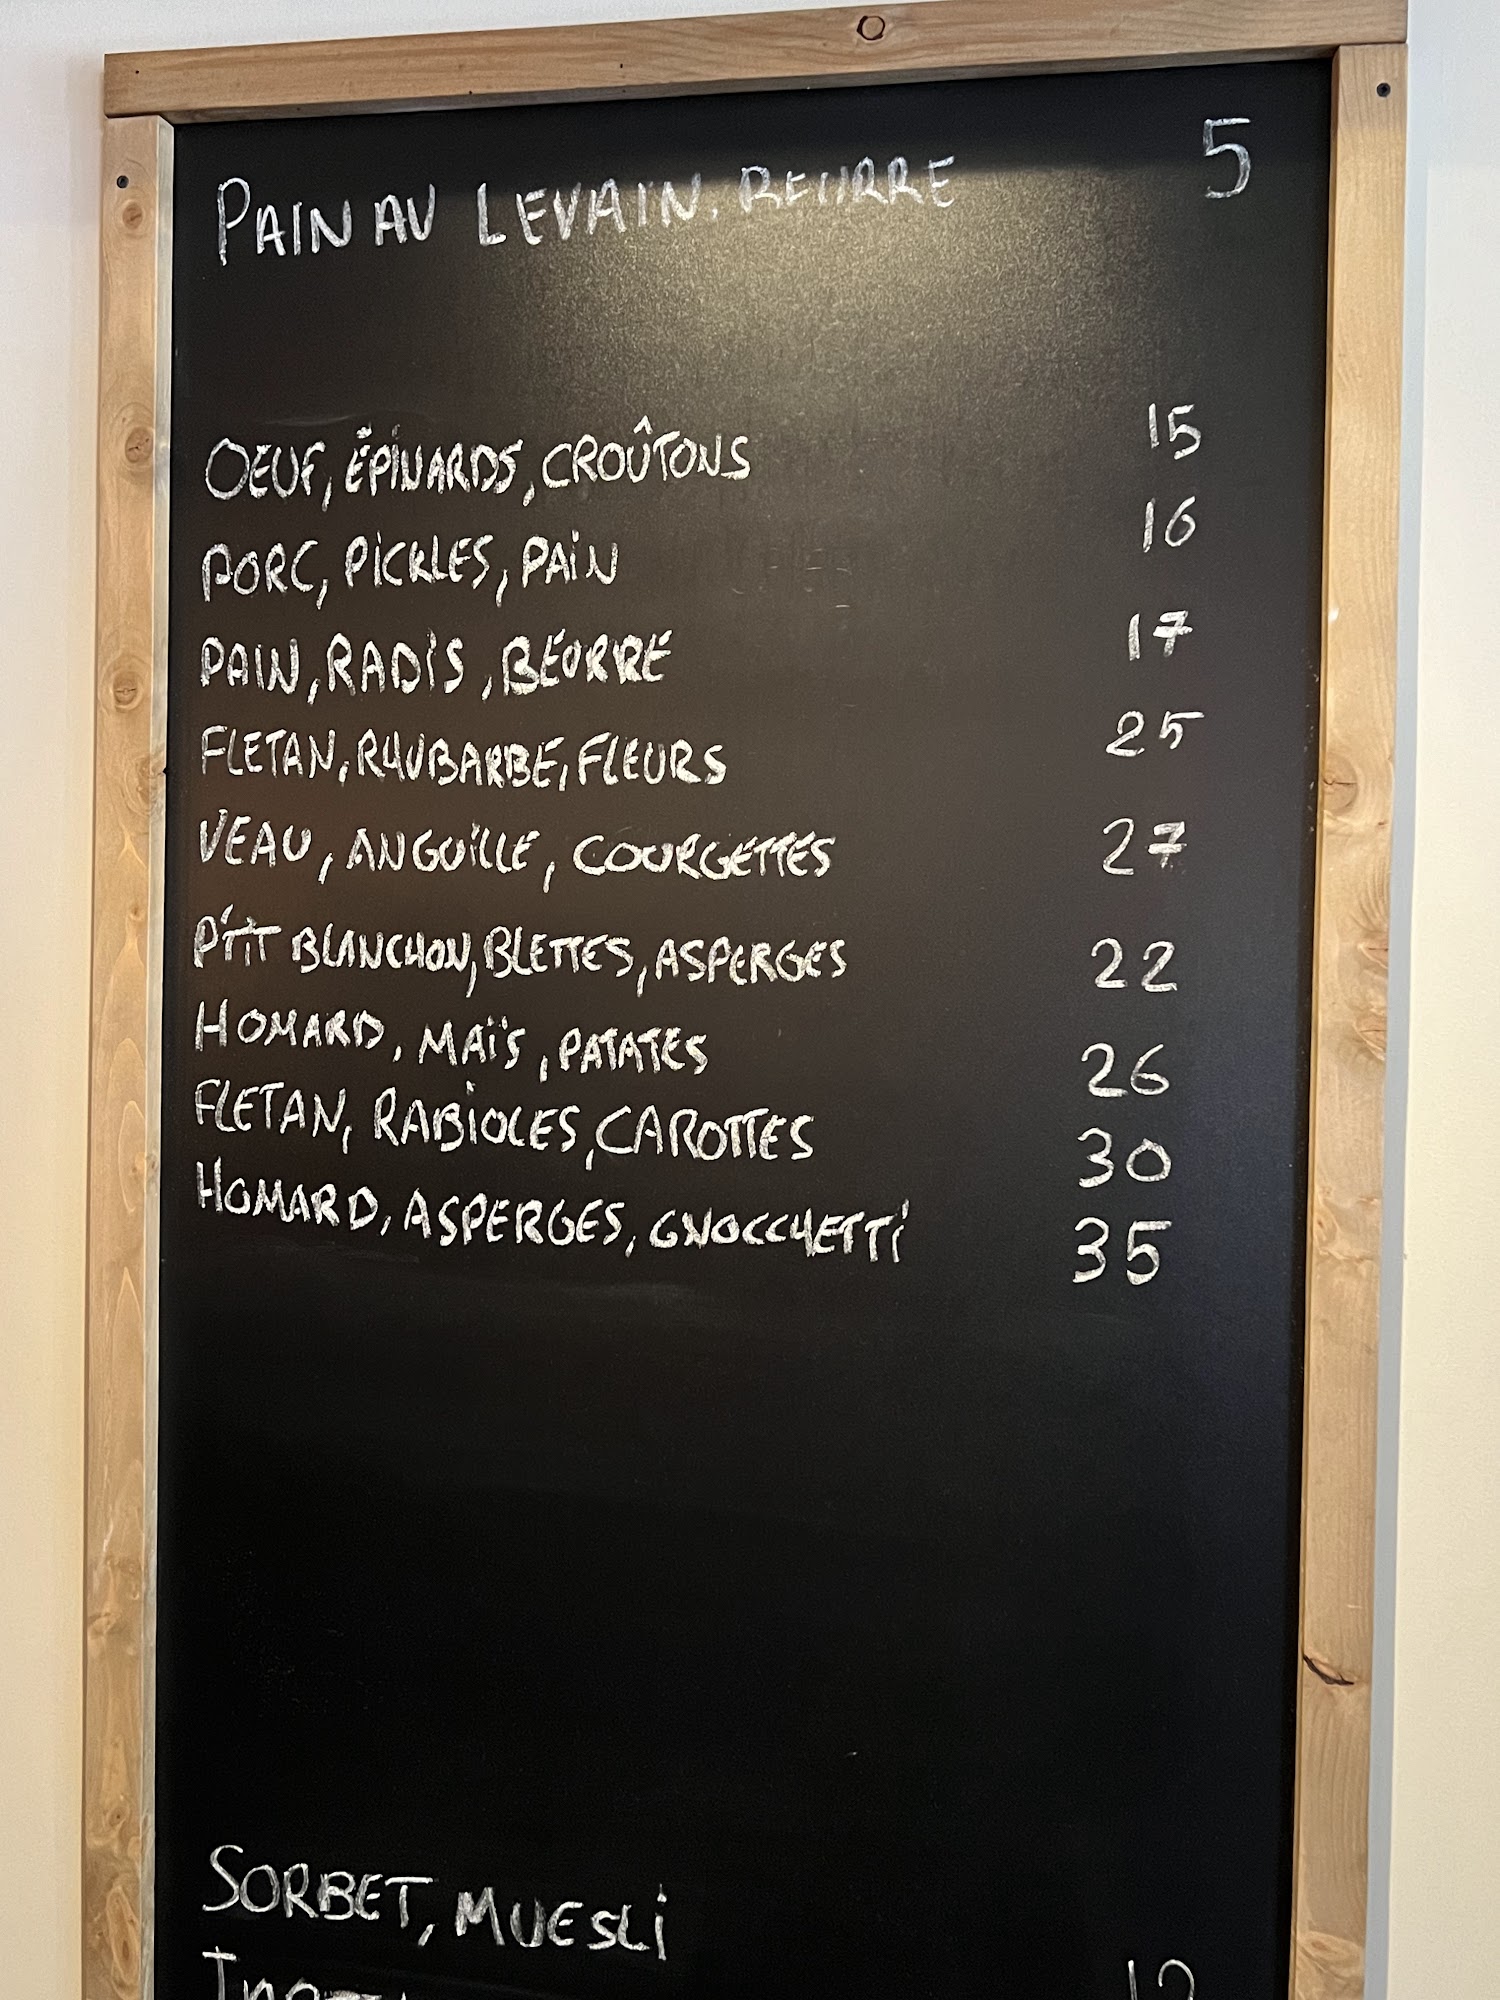 PAIN AU LEVAIN, BEURRE 5
OEUF, ÉPINARDS, CROÛTONS 15
PORC, PICKLES, PAIN 16
PAIN, RADIS, BEURRE 17
FLETAN, RHUBARBE, FLEURS 25
VEAU, ANGUILLE, COURGETTES 27
P'TIT BLANCHON, BLETTES, ASPERGES 22
HOMARD, MAÏS, PATATES 26
FLETAN, RABIOLES, CAROTTES 30
HOMARD, ASPERGES, GNOCCHETTI 35
SORBET, MUESLI
12